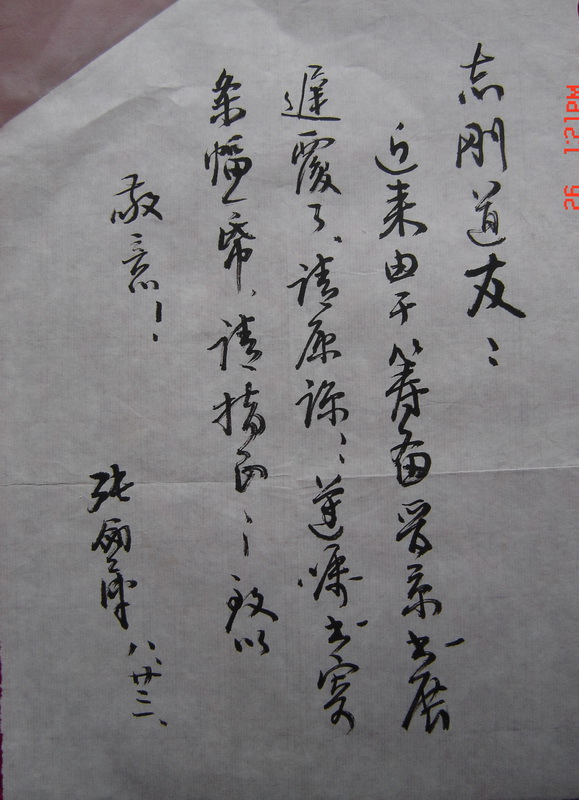 志刚道友：
近来由于筹备晋京书展
遲覆了、请原谅；遵嘱书寄
条幅一帋、请指正！致以
敬意！
张
八、廿三、
26 1:21PM